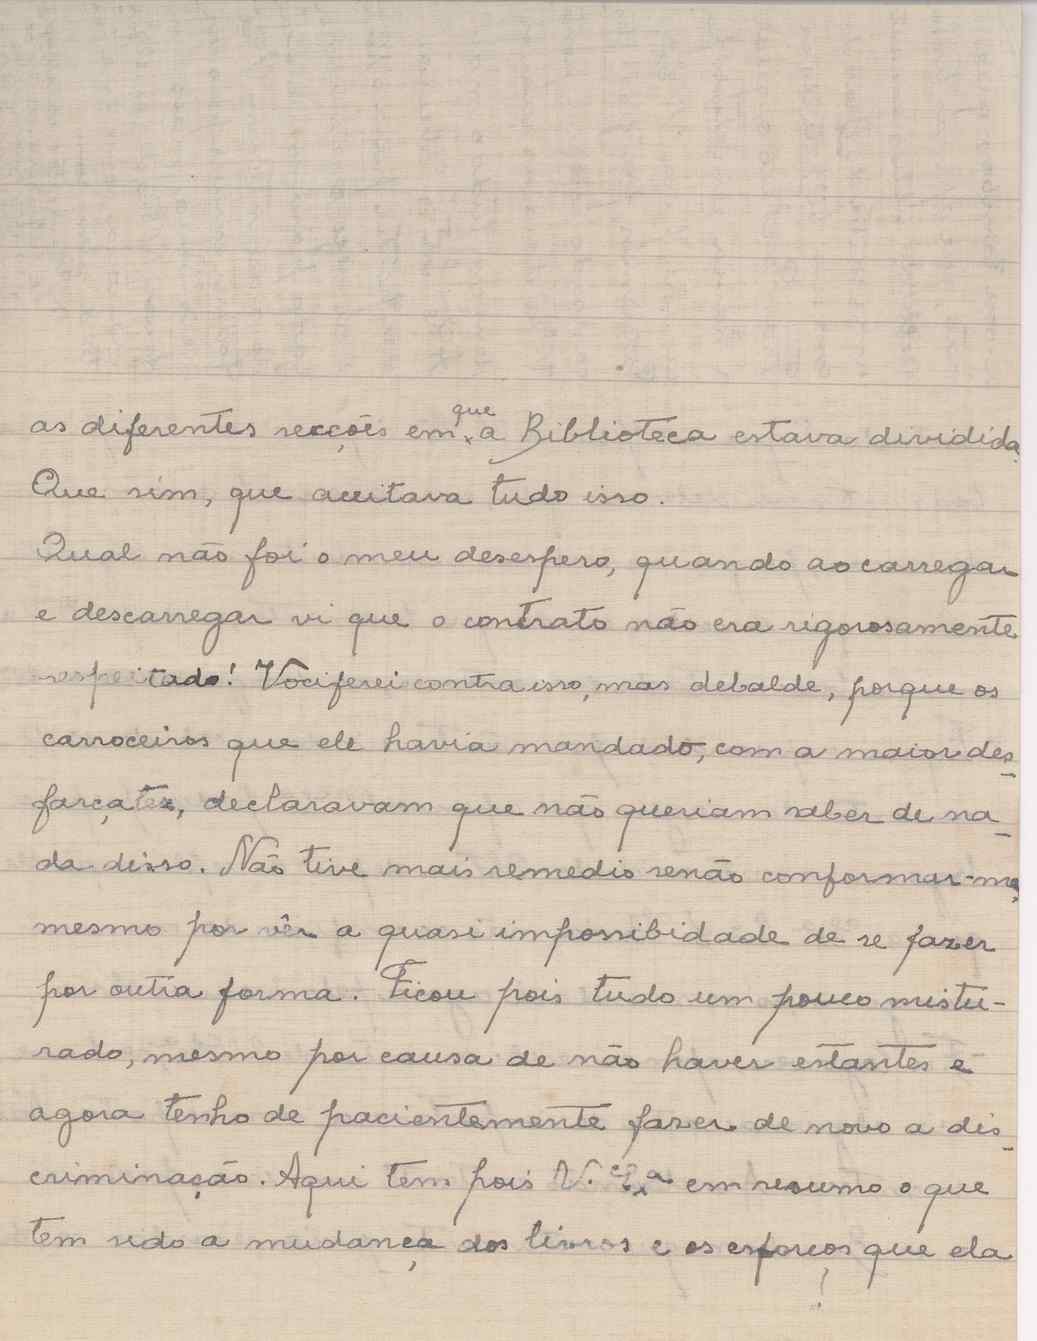 as diferentes secções em que a Biblioteca estava dividida.
Que sim, que aceitava tudo isso.
Qual não foi o meu desespero, quando ao carregar
e descarregar vi que o contrato não era rigorosamente
respeitado! Vociferei contra isso, mas debalde, porque os
carroceiros que ele havia mandado, com a maior des-
façatez, declaravam que não queriam saber de na-
da disso. Não tive mais remedio senão conformar-me,
mesmo por vêr a quasi impossibidade de se fazer
por outra forma. Ficou pois tudo um pouco mistu-
rado, mesmo por causa de não haver estantes e
agora tenho de pacientemente fazer de novo a dis-
criminação. Aqui tem pois V. Ex.a em resumo o que
tem sido a mudança dos livros e os esforços que ela